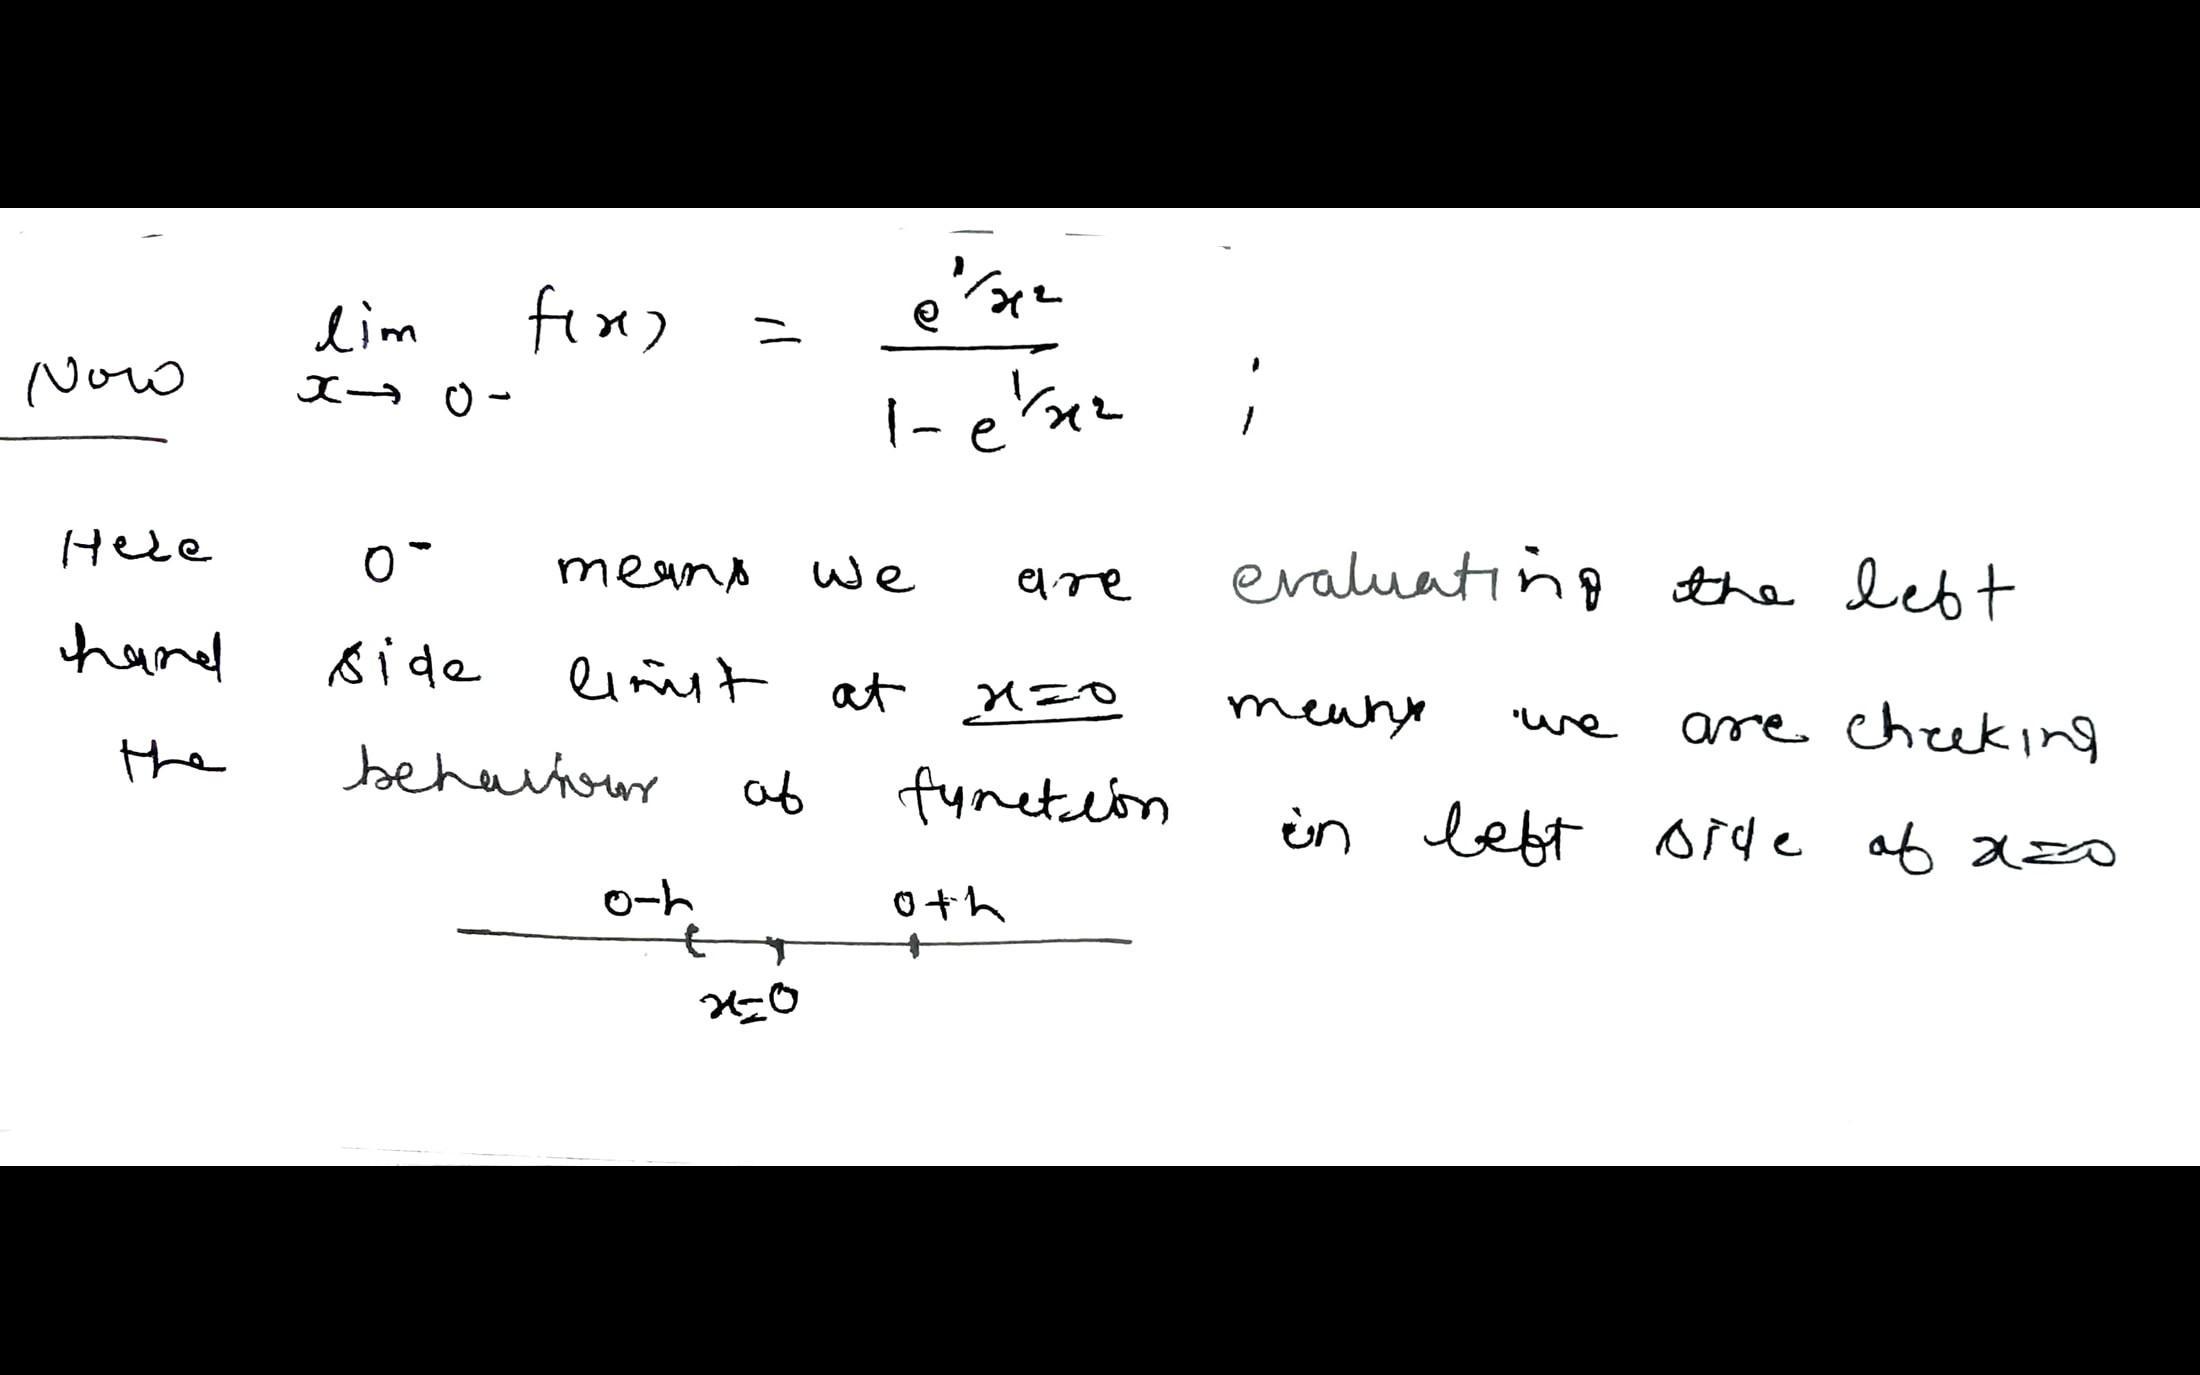 Now lim x→0- f(x) = e^1/x² / 1-e^1/x² ;
Here 0⁻ means we are evaluating the left
hand side limit at x=0 means we are checking
the behaviour of function in left side of x=0
0-h 0+h
x=0